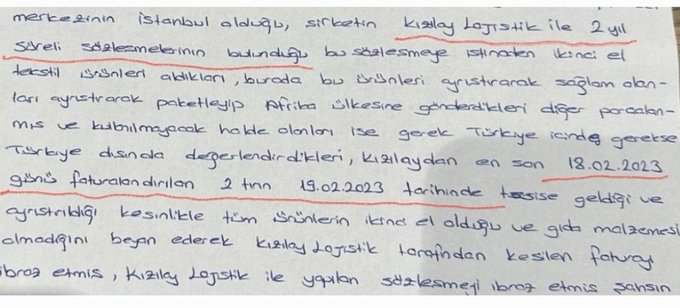 merkezinin İstanbul olduğu, şirketin Kızılay Lojistik ile 2 yıl
süreli sözleşmelerinin bulunduğu bu sözleşmeye istinaden ikinci el
tekstil ürünleri aldıkları, burada bu ürünleri ayrıştırarak sağlam olan-
ları ayrıştırarak paketleyip Afrika ülkesine gönderdikleri diğer parçalan-
mış ve kullanılmayacak halde olanları ise gerek Türkiye içinde gerekse
Türkiye dışında değerlendirdikleri, Kızılaydan en son 18.02.2023
günü faturalandırılan 2 tırın 19.02.2023 tarihinde tesise geldiği ve
ayrıştırıldığı kesinlikle tüm ürünlerin ikinci el olduğu ve gıda malzemesi
olmadığını beyan ederek Kızılay Lojistik tarafından kesilen faturayı
ibraz etmiş, Kızılay Lojistik ile yapılan sözleşmeyi ibraz etmiş şahsın